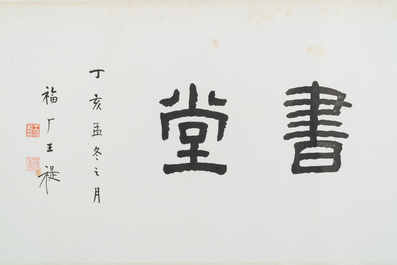 書堂
丁亥孟冬之月
福厂王禔